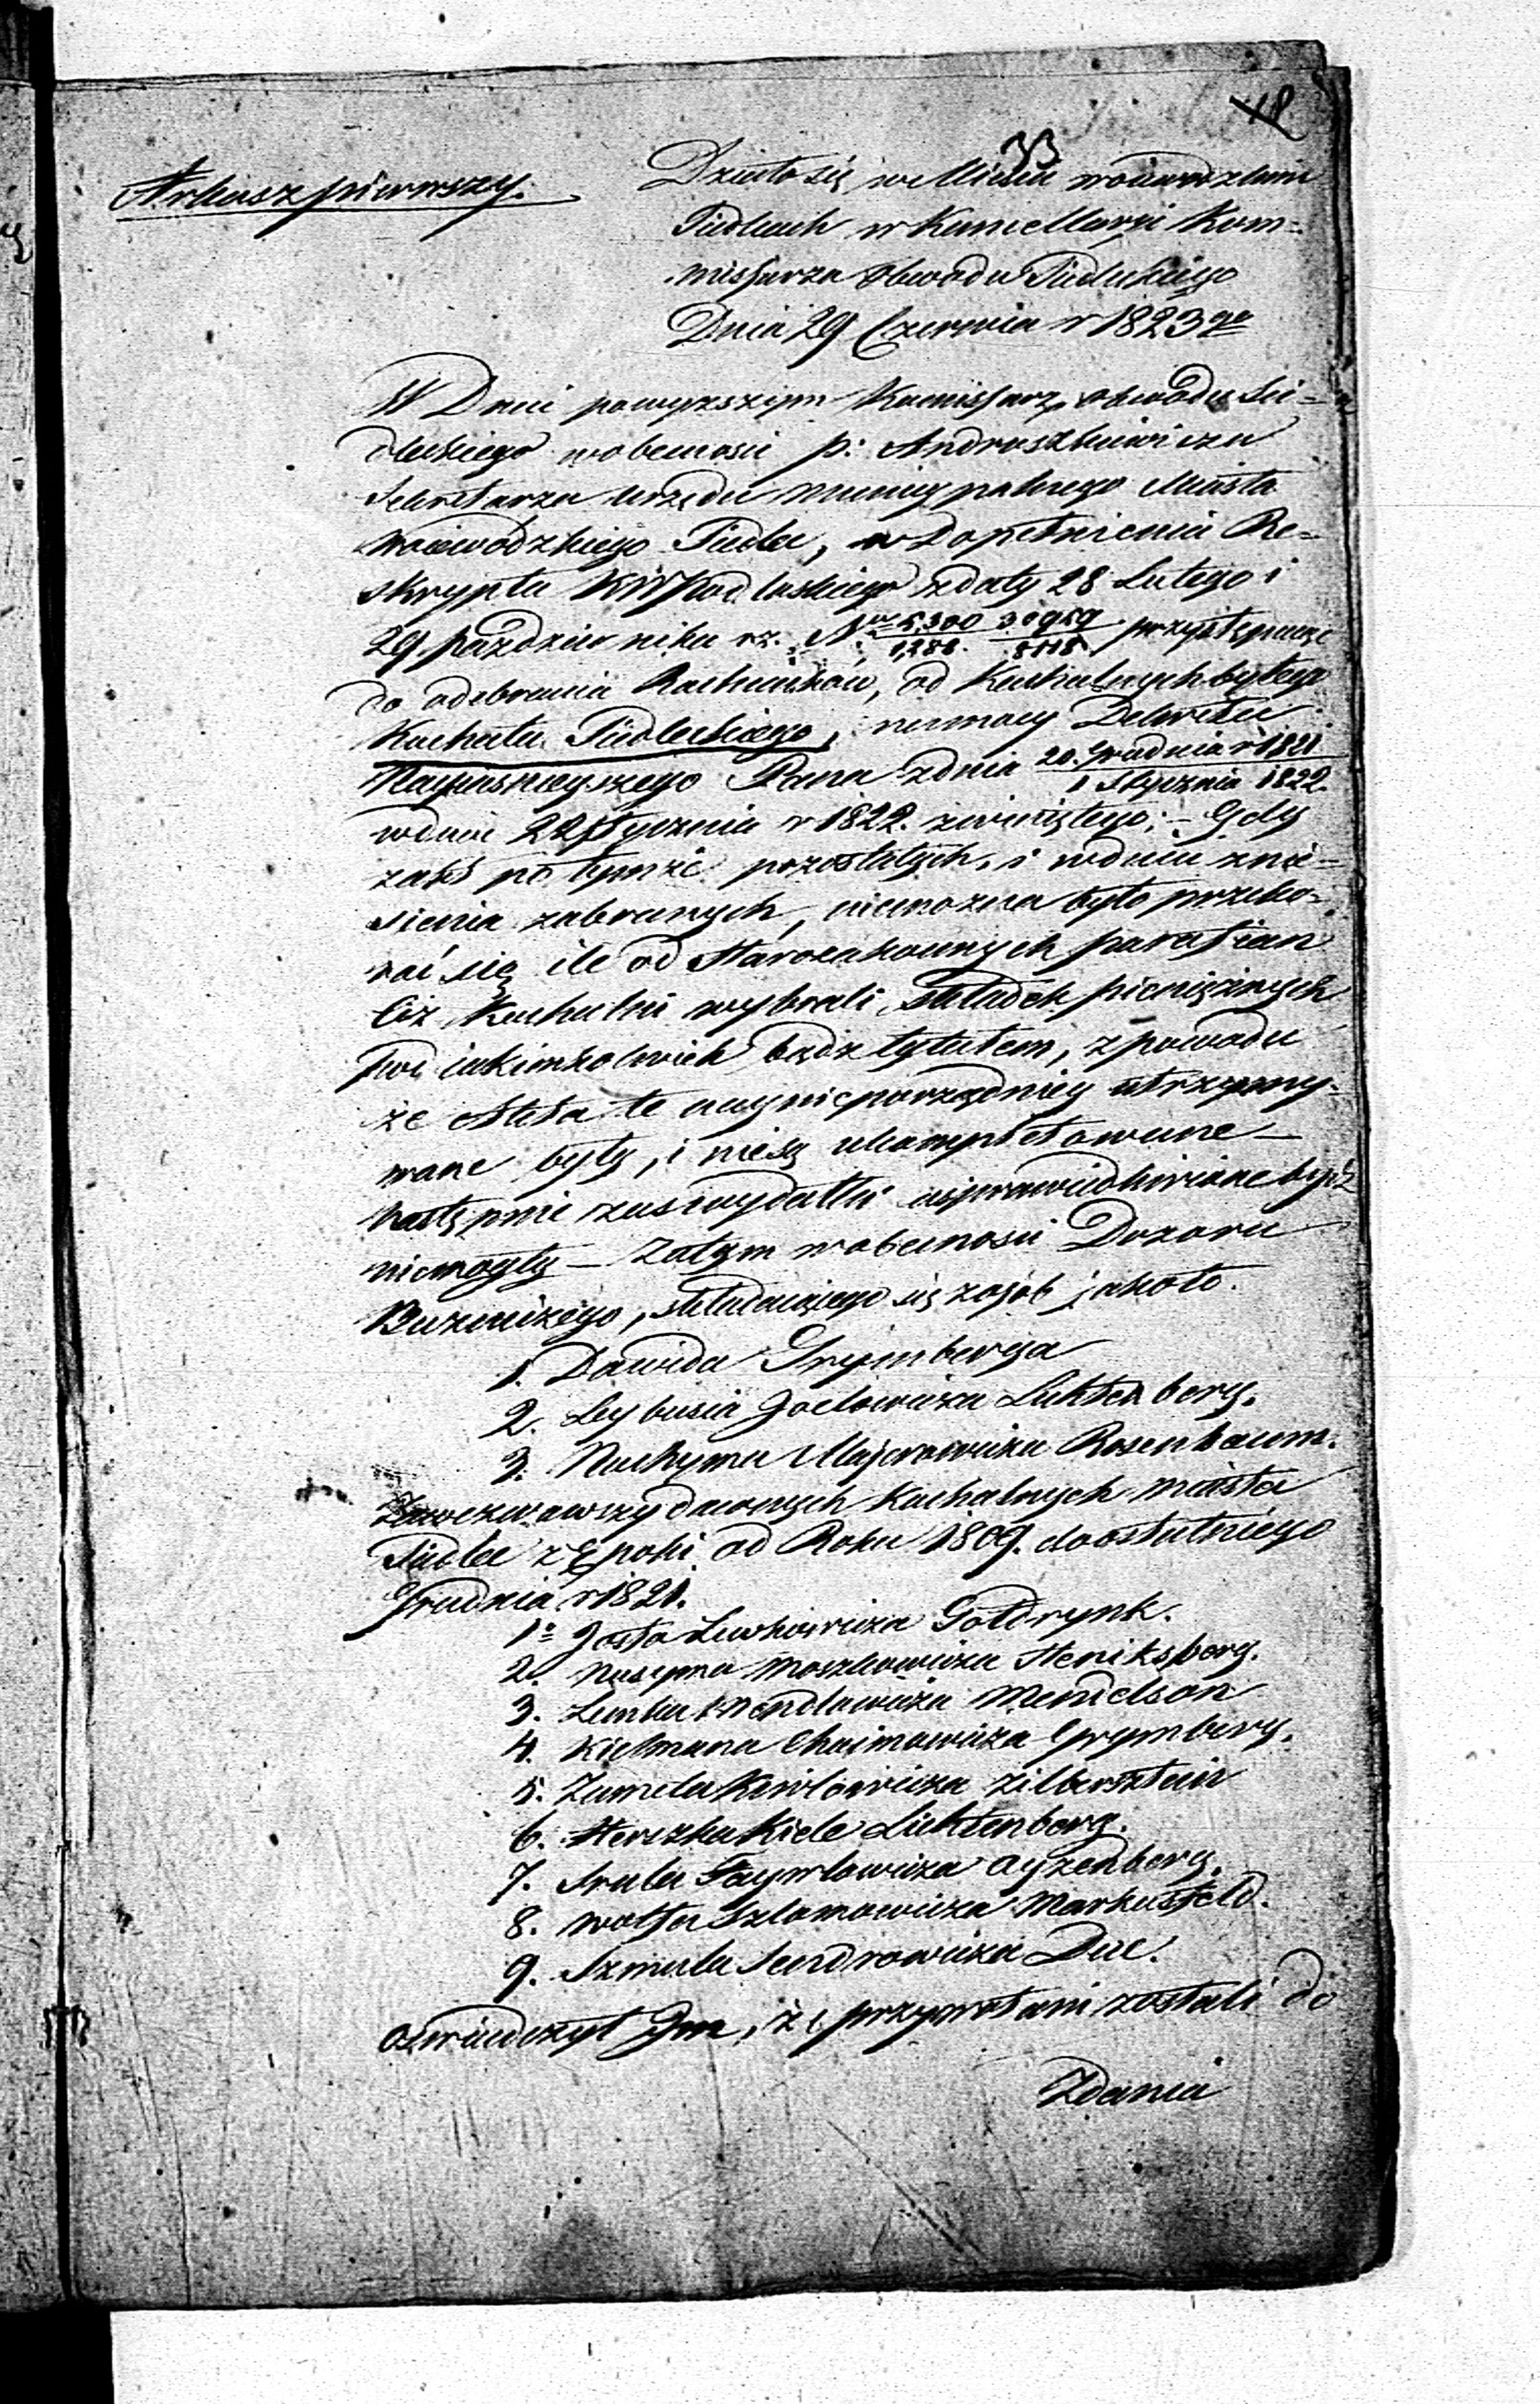 18
33
Arkusz pierwszy.
Działo się w Mieście woiewodzkim
Siedlcach w Kancellaryi Kom=
missarza Obwodu Siedleckiego
Dnia 29 Czerwca r 1823 go
W Dniu powyzszym Kommissarz obwodu Sie=
dleckiego w obecnosci p: Andruszkiewicza
Sekretarza Urzędu Municypalnego Miasta
Woiewodzkiego Siedlec, w Dopełnieniu Re=
skryptu KWPodlaskiego z daty 28 Lutego i
29 Pazdziernika rz. Nro 5,300/1,286. 30959/8118 przystępuiąc
do odebrania Rachunków, od Kachalnych byłego
Kachału Siedleckiego, na mocy Dekretu
Nayiasnieyszego Pana z dnia 20. Grudnia r 1821/1 Stycznia 1822.
w dniu 22 Stycznia r 1822. zwiniętego; - Gdy
zaś po tymże pozostałych, i w dniu znie=
sienia zabranych, niemozna było przeko=
nać się ile od Starozakonnych parafian
Ciż Kachalni wybrali, składek pieniężnych
pod iakimkolwiek bądz tytułem, z powodu
że Akta te naynieporządniey utrzymy=
wane były, i niesą ukompletowane —
następnie zaś wydatki usprawiedliwione być
niemogły — Zatym w obecnosci Dozoru
Buzniczego, składaiącego się z osób jakoto.
1. Dawida Grynberga
2. Leybusia Joelowicza Lichtenberg.
3. Nuchyma Majerowicza Rosenbaum.
Zawezwawszy dawnych Kachalnych miasta
Siedlec z Epoki od Roku 1809. do ostatniego
Grudnia r 1821.
1o Joska Lewkowicza Goldrynk.
2. Nusyma Moszkowicza Heniksberg.
3. Lewka Mendlowicza Mendelson
4. Kielmana Chaimowicza Grymberg.
5. Zamela Kiwlowicza Zilbersztein
6. Herszka Kiele Lichtenberg.
7. Srula Faywlowicza Ayzenberg.
8. Wolfa Szlamowicza Markusfeld.
9. Szmula Sendrowicza Duc.
oswiadczył Im, że przyzwani zostali do
Zdania